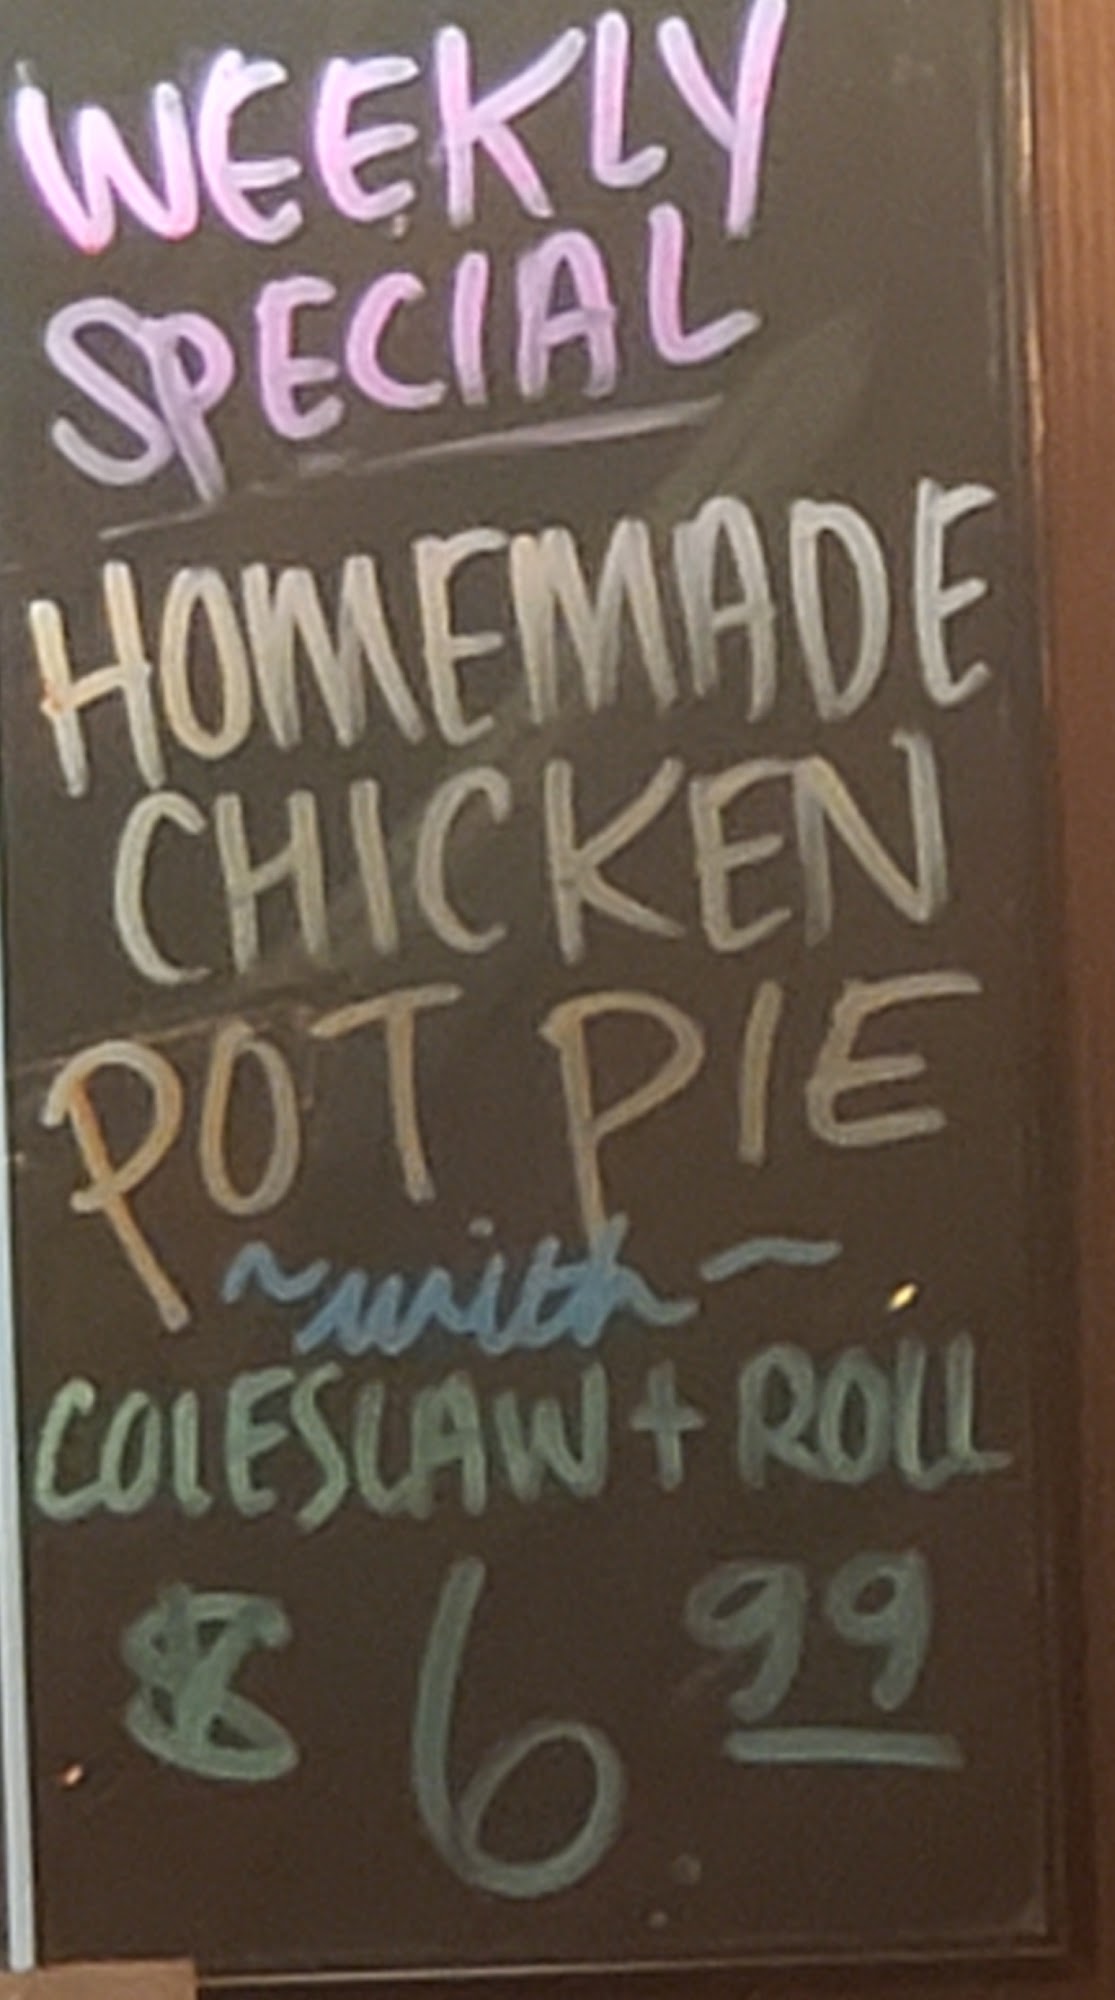 WEEKLY
SPECIAL
HOMEMADE
CHICKEN
POT PIE
~with~
COLESLAW + ROLL
$6.99